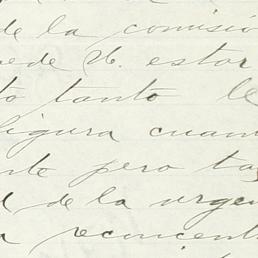 de la comisió
ede V. estar
to tanto le
figura cuan
te pero ta
l de la urgen
a reconcent